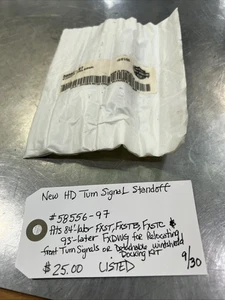 New HD Turn Signal Standoff
#58556-97
fits 84'-later FXST, FXSTB, FXSTC &
93'-later FXDWG for Relocating
front Turn Signals or Detachable windshield
Docking KIT
$25.00 LISTED 9/30